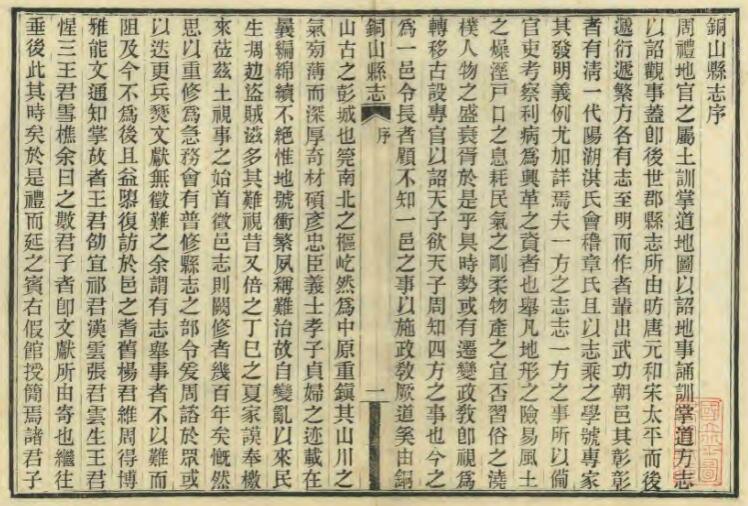 銅山縣志序
周禮地官之屬土訓掌道地圖以詔地事誦訓掌道方志
以詔觀事蓋卽後世郡縣志所由昉唐元和宋太平而後
遞衍遞繁方各有志至明而作者輩出武功朝邑其彰彰
者有淸一代陽湖洪氏會稽章氏且以志乘之學號專家
其發明義例尤加詳焉夫一方之志志一方之事所以備
官吏考察利病爲興革之資者也舉凡地形之險易風土
之燥溼戸口之息耗民氣之剛柔物產之宜否習俗之澆
樸人物之盛衰胥於是乎具時勢或有遷變政敎卽視爲
轉移古設專官以詔天子欲天子周知四方之事也今之
爲一邑令長者顧不知一邑之事以施政敎厥道奚由銅
銅山縣志
序
一
山古之彭城也筦南北之樞屹然爲中原重鎭其山川之
氣菊薄而深厚奇材碩彥忠臣義士孝子貞婦之迹載在
曩編綿續不絕惟地號衝繁夙稱難治故自變亂以來民
生凋攰盜賊滋多其難視昔又倍之丁巳之夏家謨奉檄
來莅茲土視事之始首徵邑志則闕修者幾百年矣慨然
思以重修爲急務會有普修縣志之部令爰周諮於眾或
以迭更兵燹文獻無徵難之余謂有志舉事者不以難而
阻及今不爲後且益隳復訪於邑之耆舊楊君維周得博
雅能文通知掌故者王君劭宜祁君漢雲張君雲生王君
惺三王君雪樵余曰之數君子者卽文獻所由寄也繼往
垂後此其時矣於是禮而延之賓右假館授簡焉諸君子